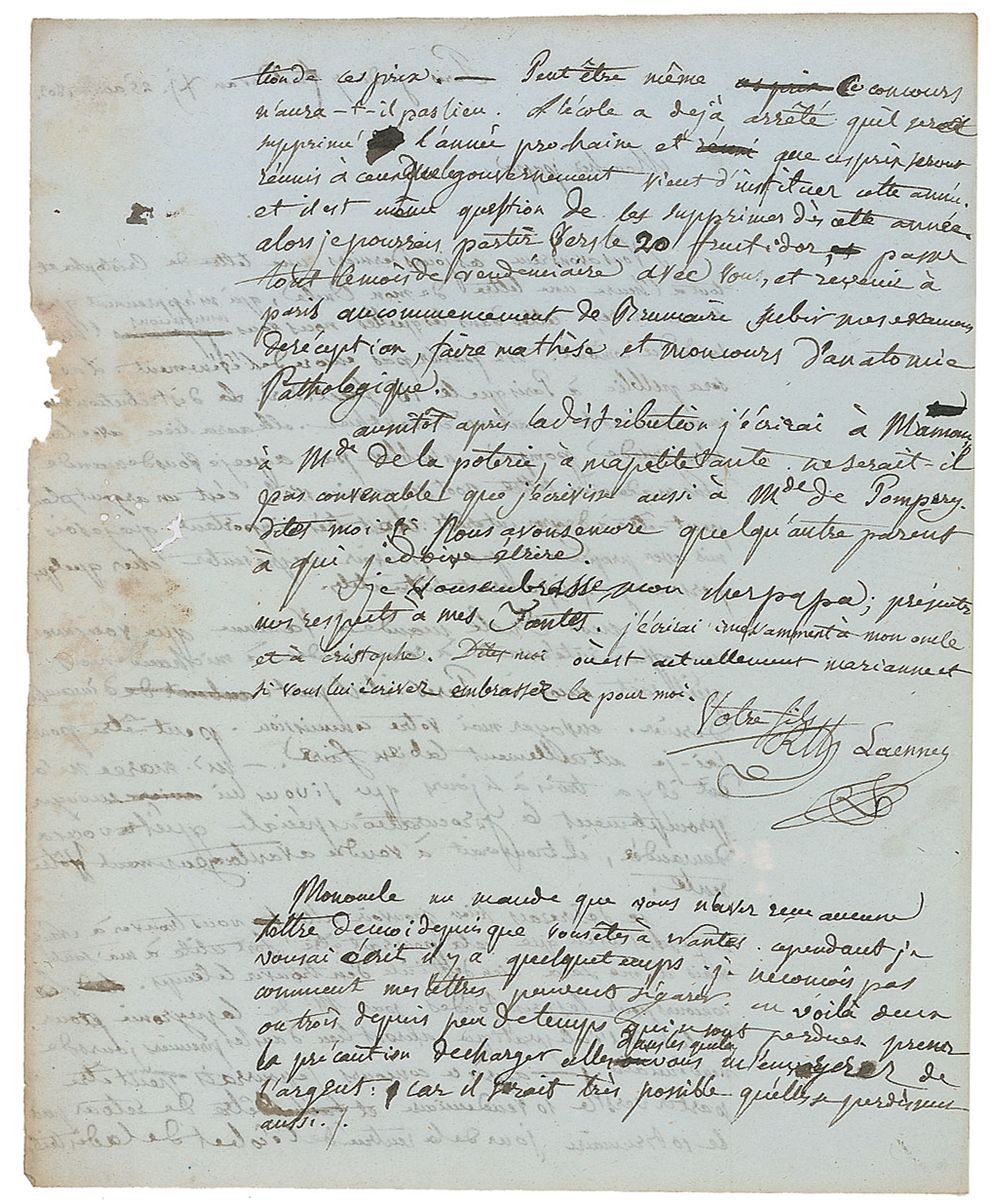 tion de ces prix. — Peut être même ces prix Ce concours
n'aura-t-il pas lieu. l'école a dejà arrêté qu'il serait
supprimé l'année prochaine et réuni que ces prix seront
réunis à ceux que le gouvernement vient d'instituer cette année.
et il est même question de les supprimer dès cette année
alors je pourrais partir vers le 20 fructidor, et passer
tout le mois de vendémiaire avec vous, et revenir à
paris au commencement de Brumaire subir mes examens
de réception, faire ma thèse et mon cours d'anatomie
Pathologique.
aussitôt après la distribution j'écrirai à Maman,
à Mde de la poterie, à ma petite tante. ne serait-il
pas convenable que j'écrivisse aussi à Mde de Pompery.
dites moi si Nous avons encore quelqu'autre parent
à qui je doive écrire.
je vous embrasse mon cher papa; présentez
mes respects à mes Tantes. j'écrirai incessamment à mon oncle
et à cristophe. Dites moi où est actuellement marianne et
si vous lui écrivez embrassez la pour moi.
Votre fils
Laennec
Mon oncle me mande que vous n'avez reçu aucune
lettre de moi depuis que vous êtes à nantes. cependant je
vous ai écrit il y a quelque temps. je ne conçois pas
comment mes lettres peuvent s'égarer. en voilà deux
ou trois depuis peu de temps qui se sont perdues prenez
la précaution de charger celles dans lesquelles vous m'enverrez de
l'argent: car il serait très possible qu'elles se perdissent
aussi.